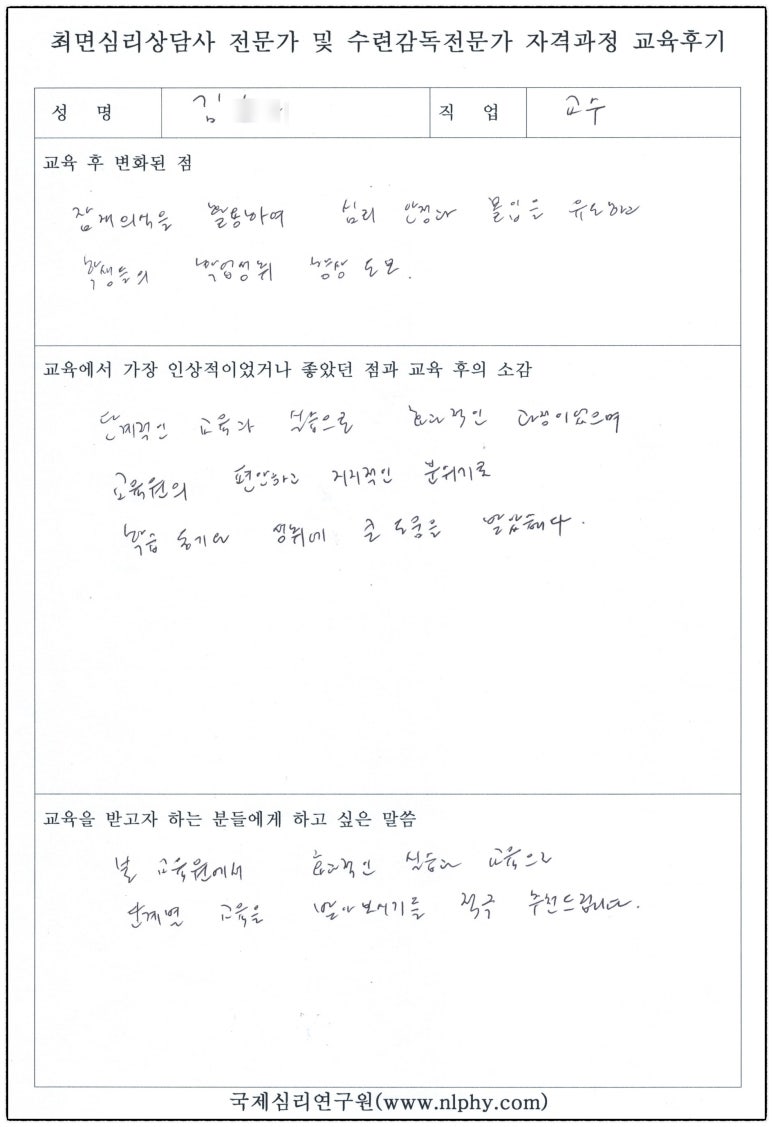 최면심리상담사 전문가 및 수련감독전문가 자격과정 교육후기
성 명 김 직 업 교수
교육 후 변화된 점
잠재의식을 활용하여 심리 안정과 몰입을 유도하고
학생들의 학업성취 향상 도모.
교육에서 가장 인상적이었거나 좋았던 점과 교육 후의 소감
단계적인 교육과 실습으로 효과적인 과정이었으며
교육원의 편안하고 지지적인 분위기로
학습 동기와 성취에 큰 도움을 받았습니다.
교육을 받고자 하는 분들에게 하고 싶은 말씀
본 교육원에서 효과적인 실습과 교육으로
단계별 교육을 받아보시기를 적극 추천드립니다.
국제심리연구원(www.nlphy.com)